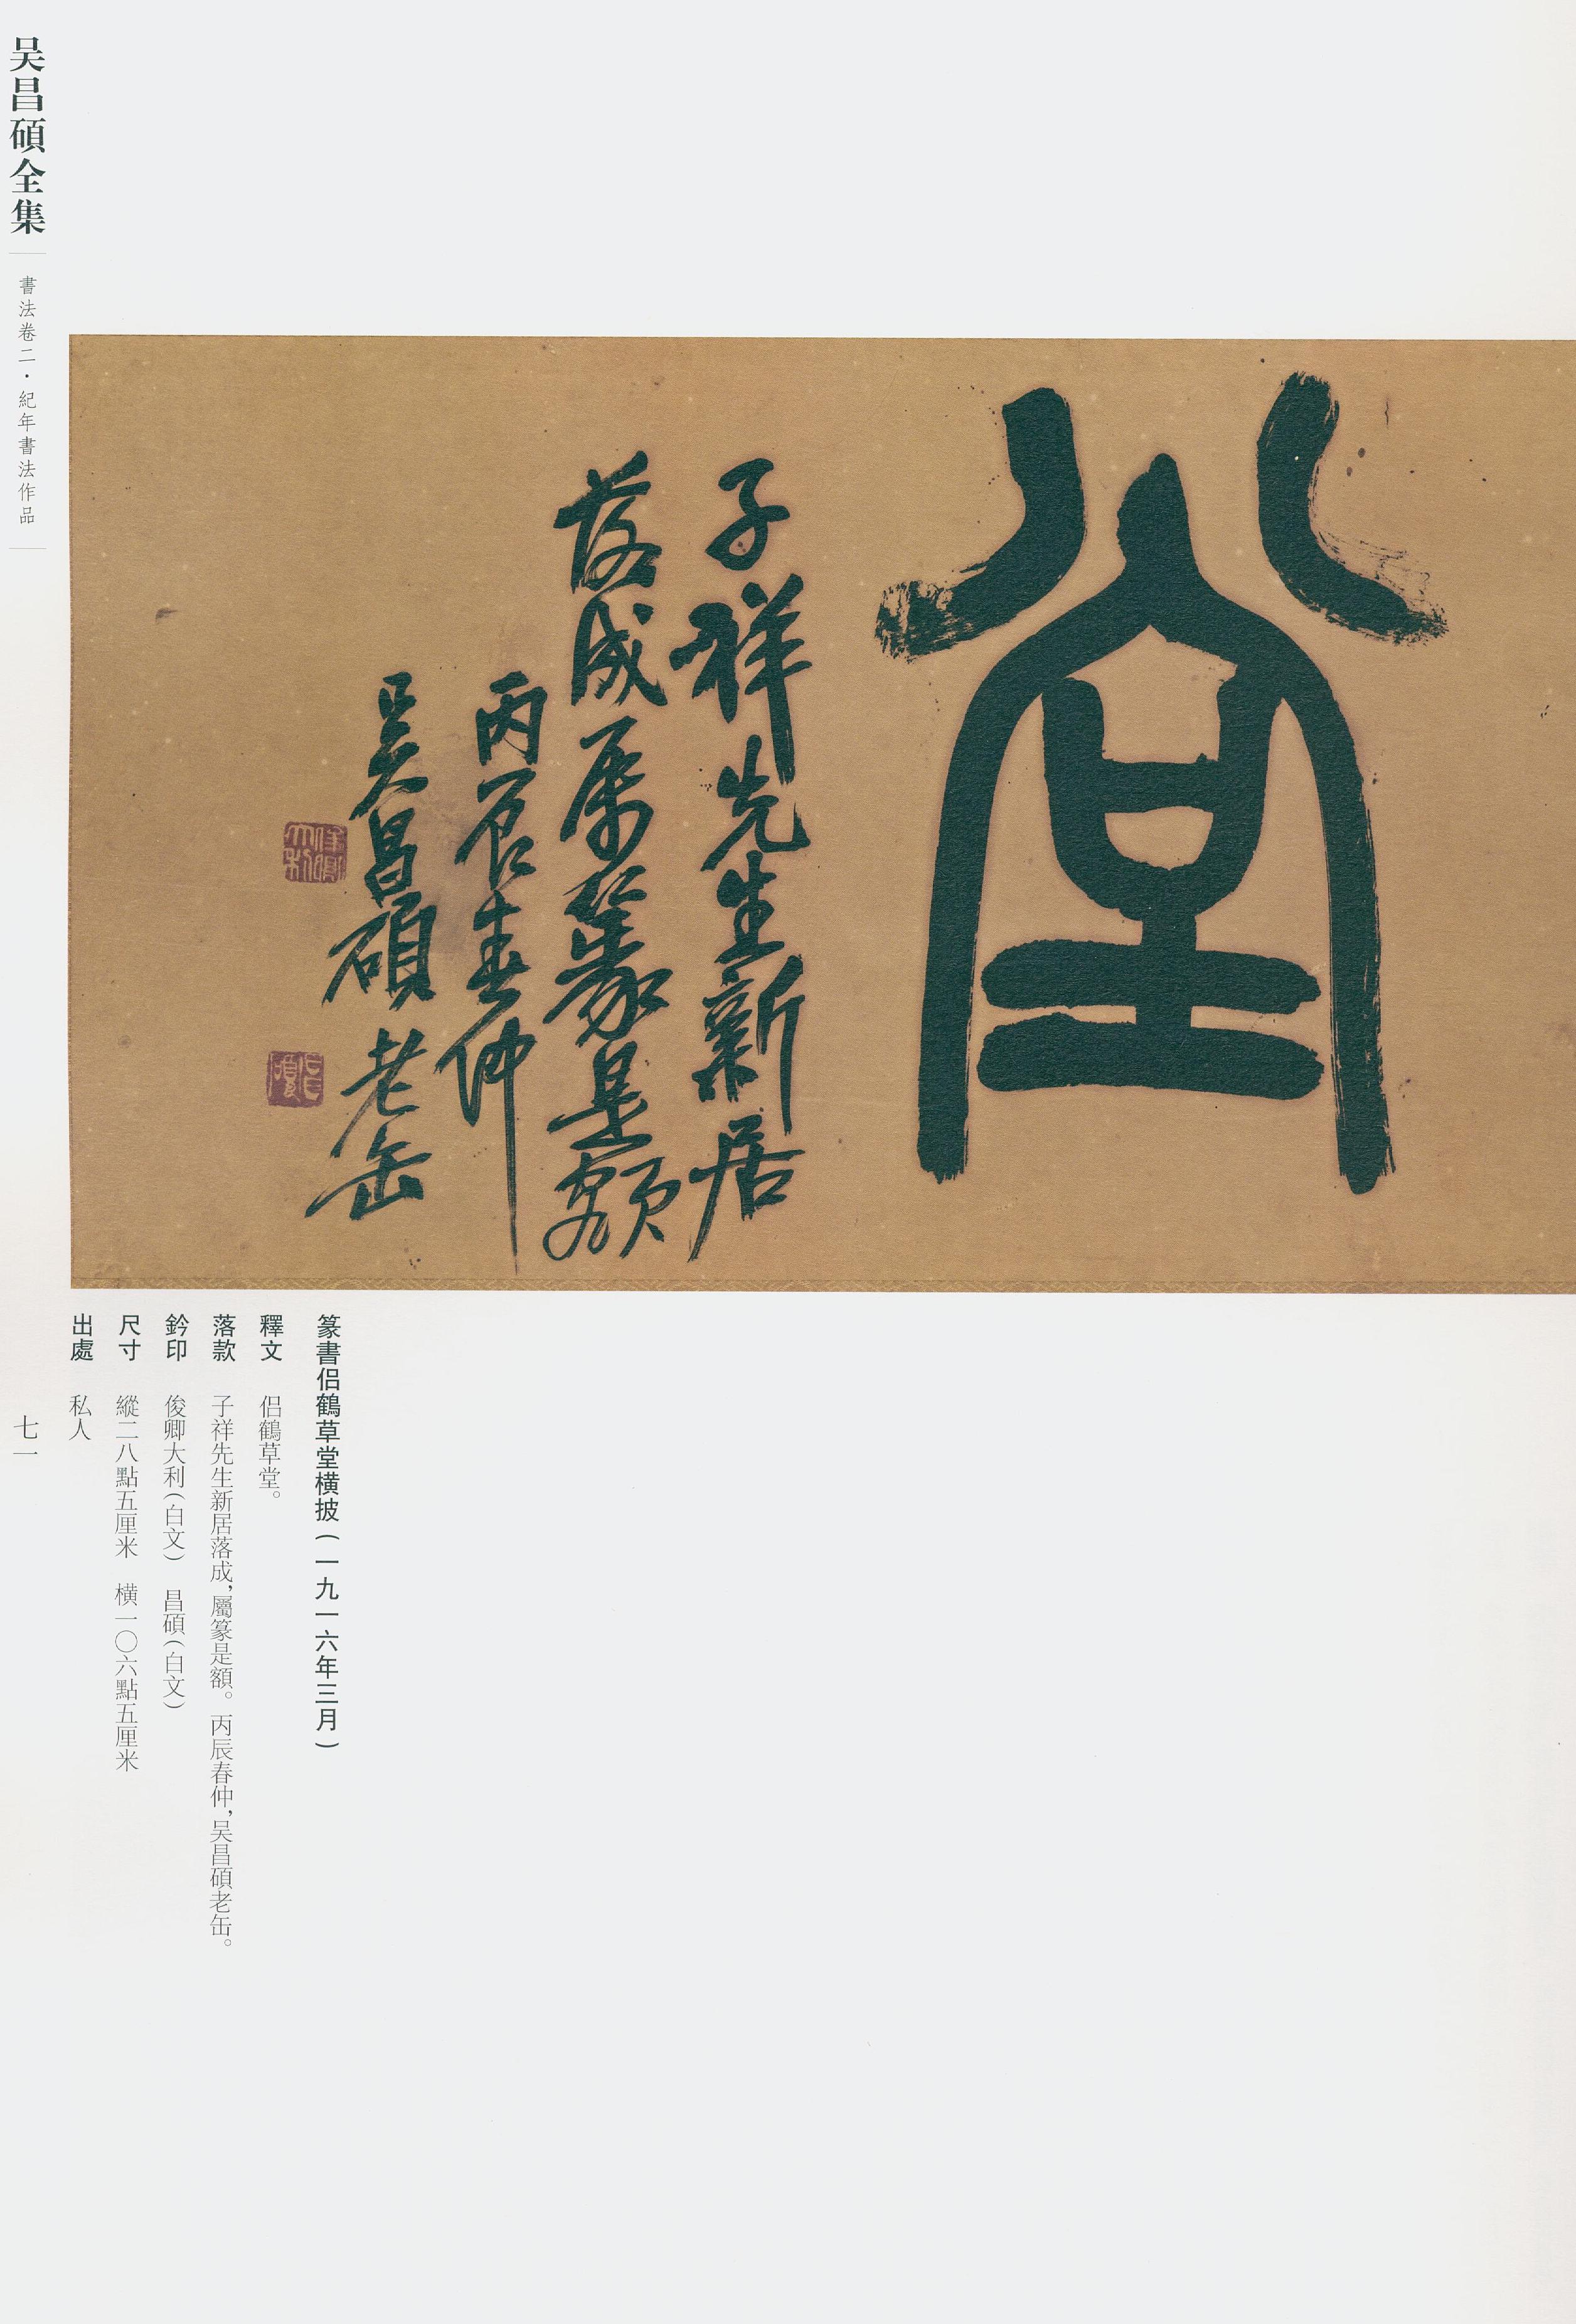 堂
子祥先生新居
落成属篆是額
丙辰春仲
吴昌碩老缶
俊卿大利
昌碩
篆書侣鶴草堂橫披（一九一六年三月）
釋文　侣鶴草堂。
落款　子祥先生新居落成，屬篆是額。丙辰春仲，吴昌碩老缶。
鈐印　俊卿大利（白文）　昌碩（白文）
尺寸　縱二八點五厘米　橫一〇六點五厘米
出處　私人
吴昌碩全集
書法卷二·紀年書法作品
七一